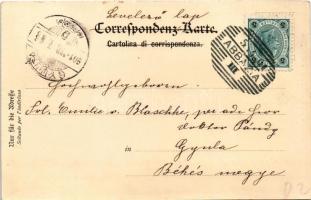 Levelező lap
Correspondenz-Karte.
Cartolina di corrispondenza.
ABBAZIA
Hochwohlgeboren
Frl. Emilie v. Blaschke, per adr Herr
Doktor Pándy
in Gyula
Békés megye
Nur für die Adresse
Soltanto per l'indirizzo